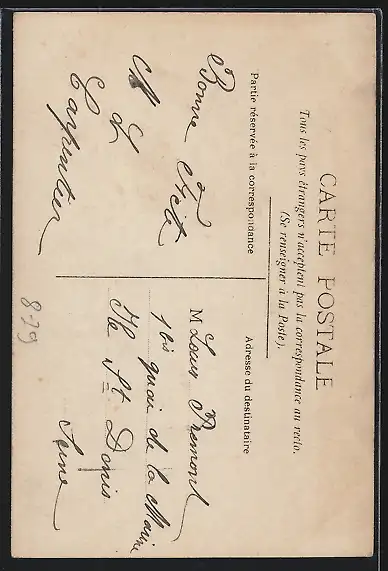 CARTE POSTALE
Tous les pays étrangers n'acceptent pas la correspondance au recto.
(Se renseigner à la Poste).
Partie réservée à la correspondance
Bonne Fête
L Carpentier
Adresse du destinataire
M Louis Premont
1 bis quai de la Marine
Ile St Denis
Seine
8-29